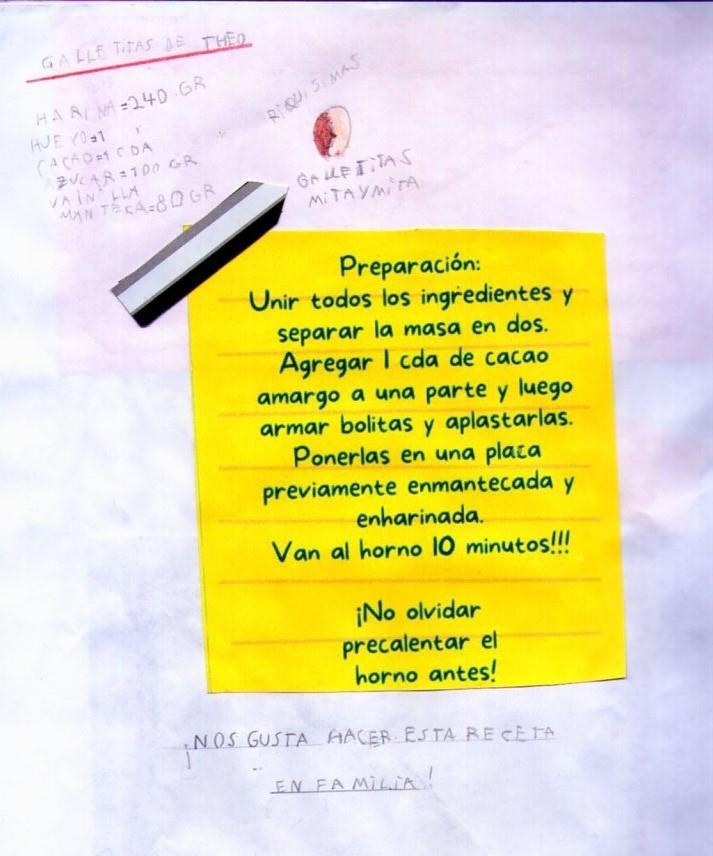 GALLETITAS DE THEO
HARINA=240 GR
HUEVO=1
CACAO=1 CDA
AZUCAR=100 GR
VAINILLA
MANTECA=80 GR
RIQUISIMAS
GALLETITAS
MITAYMITA
Preparación:
Unir todos los ingredientes y
separar la masa en dos.
Agregar 1 cda de cacao
amargo a una parte y luego
armar bolitas y aplastarlas.
Ponerlas en una placa
previamente enmantecada y
enharinada.
Van al horno 10 minutos!!!
¡No olvidar
precalentar el
horno antes!
¡NOS GUSTA HACER ESTA RECETA
EN FAMILIA!